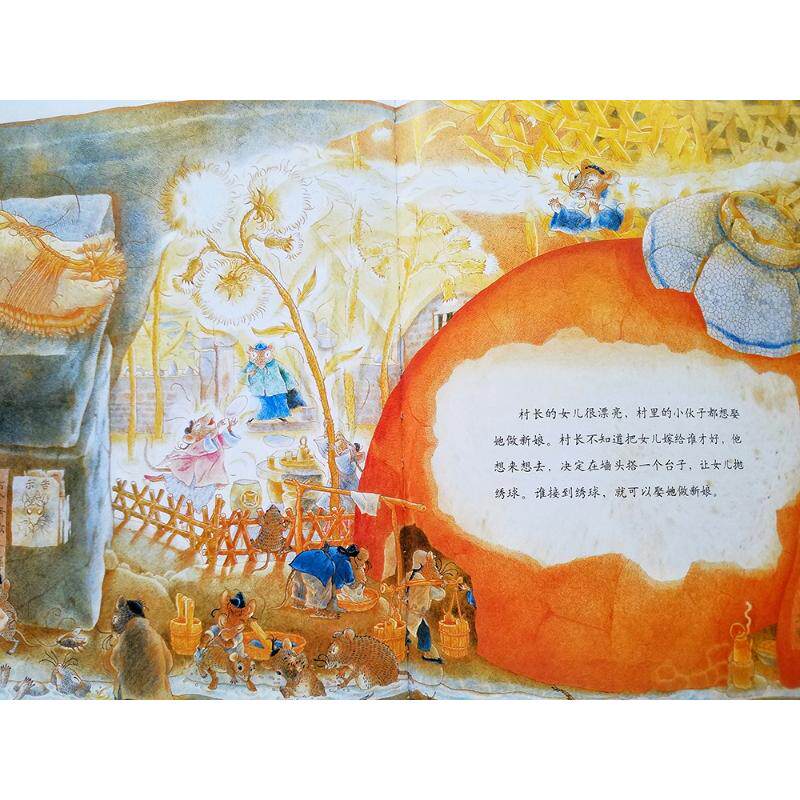 告示
村长的女儿很漂亮，村里的小伙子都想娶
她做新娘。村长不知道把女儿嫁给谁才好，他
想来想去，决定在墙头搭一个台子，让女儿抛
绣球。谁接到绣球，就可以娶她做新娘。